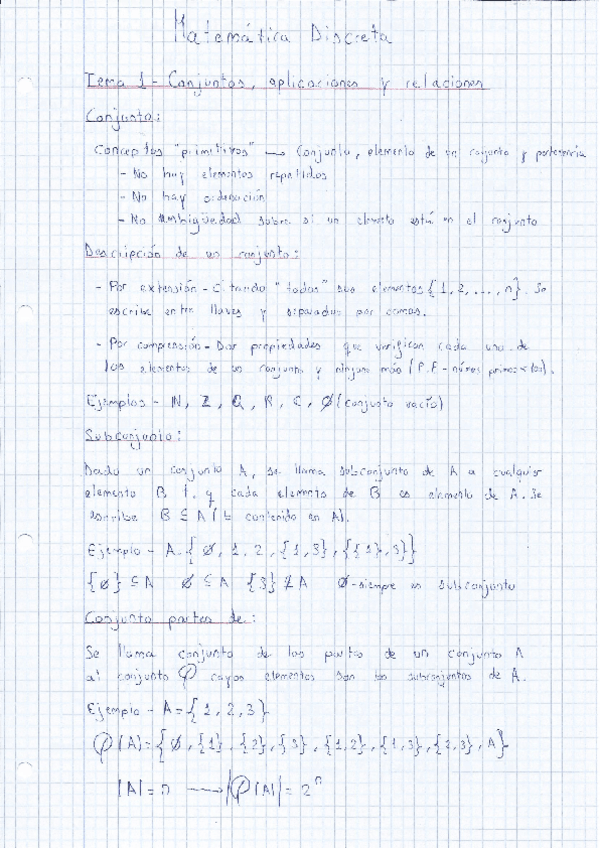 Matemática Discreta
Tema 1 - Conjuntos, aplicaciones y relaciones
Conjunto:
Conceptos "primitivos" → Conjunto, elemento de un conjunto y pertenencia
- No hay elementos repetidos
- No hay ordenación
- No Ambigüedad sobre si un elemento está en el conjunto
Descripción de un conjunto:
- Por extensión - Citando "todos" sus elementos {1, 2, ..., n}. Se
escribe entre llaves y separados por comas.
- Por comprensión - Dar propiedades que verifican cada uno de
los elementos de un conjunto y ninguno más (P.E - primos
Ejemplos - N, Z, Q, R, C, Ø (conjunto vacío)
Subconjunto:
Dado un conjunto A, se llama subconjunto de A a cualquier
elemento B t. y cada elemento de B es elemento de A. Se
escribe B ⊆ A (contenido en A).
Ejemplo - A = {Ø, 1, 2, {1, 3}, {{1}, 3}}
{Ø} ⊆ A Ø ⊆ A {3} ⊈ A Ø - siempre es subconjunto
Conjunto partes de:
Se llama conjunto de las partes de un conjunto A
al conjunto P cuyos elementos son los subconjuntos de A.
Ejemplo - A = {1, 2, 3}
P(A) = {Ø, {1}, {2}, {3}, {1, 2}, {1, 3}, {2, 3}, A}
|A| = n → |P(A)| = 2ⁿ